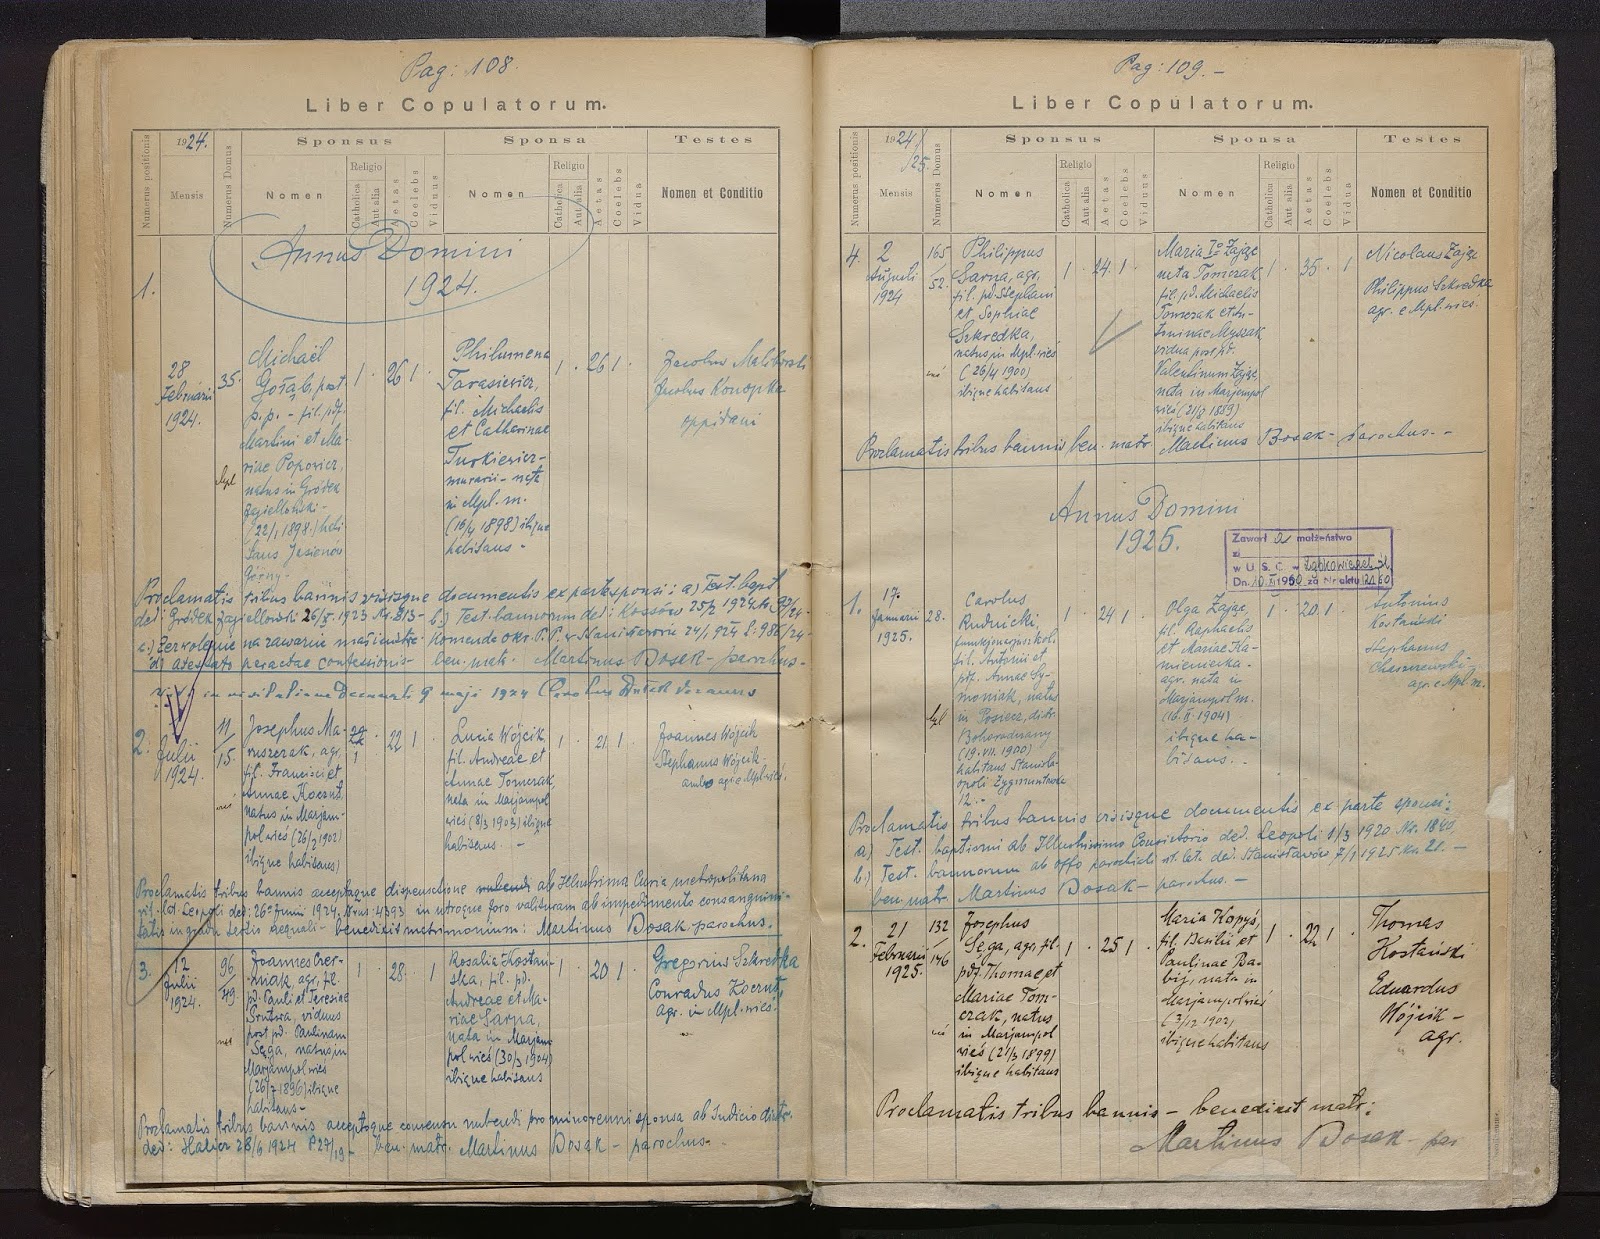 Pag: 108.
Liber Copulatorum.
Numerus positionis
1924.
Mensis
Numerus Domus
Sponsus
Nomen
Religio
Catholica
Aut alia
Aetas
Coelebs
Viduus
Sponsa
Nomen
Religio
Catholica
Aut alia
Aetas
Coelebs
Vidua
Testes
Nomen et Conditio
Annus Domini
1924.
1.
28
Februarii
1924.
35.
Mpl
Michaël
Gołąb, post
p.p. - fil. pdf.
Martini et Ma-
riae Popowicz,
natus in Gródek
Jagielloński -
(22/1 1898.) habi
tans Jesionów
Górny -
1 . 26 1
Philumena
Tarasiewicz,
fil. Michaelis
et Catharinae
Turkiewicz -
murarii - nata
in Mpl. m.
(16/4 1898) ibique
habitans -
1 . 26 1
Jacobus
Jacobus Konopka
oppidani
Proclamatis tribus bannis visisque documentis ex parte sponsi: a) Test. bapt.
ded: Gródek Jagielloński 26/X. 1923 Nr. 813 - b) Test. bannorum ded: Kossów 25/2 1924
c.) Zezwolenie na zawarcie małżeństwa Komenda okr. P.P. w Stanisławowie 24/1 1924 L: 986/24 -
d) atestato peractae confessionis - ben. matr. Martinus Bosak - parochus -
in visitatione Decanali 9 maji 1924
2.
11
Julii
1924.
15.
Josephus Ma-
ruszczak, agr.
fil. Francisci et
Annae Koczut,
natus in Marjam-
pol wieś (26/2 1902)
ibique habitans)
1 . 22 1
Lucia Wójcik
fil. Andreae et
Annae Tomczak,
nata in Marjampol
wieś (8/3 1903) ibique
habitans. -
1 . 21 1
Joannes Wójcik
Stephanus Wójcik -
ambo agr. e Mpl. wieś.
Proclamatis tribus bannis acceptaque dispensatione ab Illustrissima Curia metropolitana
rit. lat. Leopoli ded: 26. Junii 1924. Nrus: 4393 in utroque foro valituram ab impedimento consanguini-
tatis in gradu tertio aequali - benedixit matrimonium: Martinus Bosak parochus.
3.
12
Julii
1924.
96
49
Joannes Czer-
niak, agr, fil.
pd. Pauli et Teresiae
viduus
post pd. Paulinam
Sęga, natus in
Marjampol wieś
(26/7 1896) ibique
habitans -
1 . 28 . 1
Rosalia Kostań-
ska, fil. pd.
Andreae et Ma-
riae Sarna,
nata in Marjam
pol wieś (30/3 1904)
ibique habitans
1 . 20 1
Gregorius Szkredka
Conradus Koczut,
agr. in Mpl. wieś.
Proclamatis tribus bannis acceptoque consensu nubendi pro minorenni sponsa ab Judicio distr.
ded: Halicz 28/6 1924 P 27/19 - ben. matr. Martinus Bosak - parochus -
Pag: 109. -
Liber Copulatorum.
Numerus positionis
1924/
/25.
Mensis
Numerus Domus
Sponsus
Nomen
Religio
Catholica
Aut alia
Aetas
Coelebs
Viduus
Sponsa
Nomen
Religio
Catholica
Aut alia
Aetas
Coelebs
Vidua
Testes
Nomen et Conditio
4.
2
Augusti
1924
165
52.
Philippus
Sarna, agr,
fil. pd. Stephani
et Sophiae
Szkredka,
natus in Mpl. wieś
(26/4 1900)
ibique habitans
1 . 24. 1 .
Maria Iº Zając
nata Tomczak
fil. pd. Michaelis
Tomczak et An-
toninae Myszak
vidua post pd.
Valentinum Zając
nata in Marjampol
wieś (21/X 1889)
ibique habitans
1 . 35 . 1
Nicolaus Zając
Philippus Szkredka
agr. e Mpl. wieś.
Proclamatis tribus bannis ben. matr. Martinus Bosak - parochus. -
Annus Domini
1925.
Zawarł a małżeństwo
w U. S. C. w Ząbkowicach Śl.
1.
17.
Januarii
1925.
28.
Mpl
Carolus
Rudnicki,
fil. Antonii et
pdf. Annae Sy-
moniak, natus
in Posiecz, distr.
Bohorodczany
(19. VII. 1900)
habitans Stanisła-
opoli Zygmuntowska
12. -
1 . 24 1
Olga Zając,
fil. Raphaelis
et Mariae Ka-
mieniecka -
agr. nata in
Marjampol m.
(16. X. 1904)
ibique ha-
bitans. -
1 . 20 1
Antonius
Kostański
Stephanus
agr. e Mpl m.
Proclamatis tribus bannis visisque documentis ex parte sponsi:
a) Test. baptismi ab Illustrissimo Consistorio ded. Leopoli 1/3 1920 Nr. 1840,
b) Test. bannorum ab offo parochiali rt. lat. ded. Stanisławów 7/1 1925. Nr. 21. -
ben. matr. Martinus Bosak - parochus. -
2.
21
Februarii
1925.
132
146
Josephus
Sęga, agr, fil.
pdf. Thomae et
Mariae Tom-
czak, natus
in Marjampol
wieś (21/3 1899)
ibique habitans
1 . 25 1
Maria Kopyś,
fil. Basilii et
Paulinae Ba-
bij, nata in
Marjampol wieś
(3/12 1902)
ibique habitans
1 . 22 1
Thomas
Kostański
Eduardus
Wójcik -
agr.
Proclamatis tribus bannis - benedixit matr:
Martinus Bosak - par